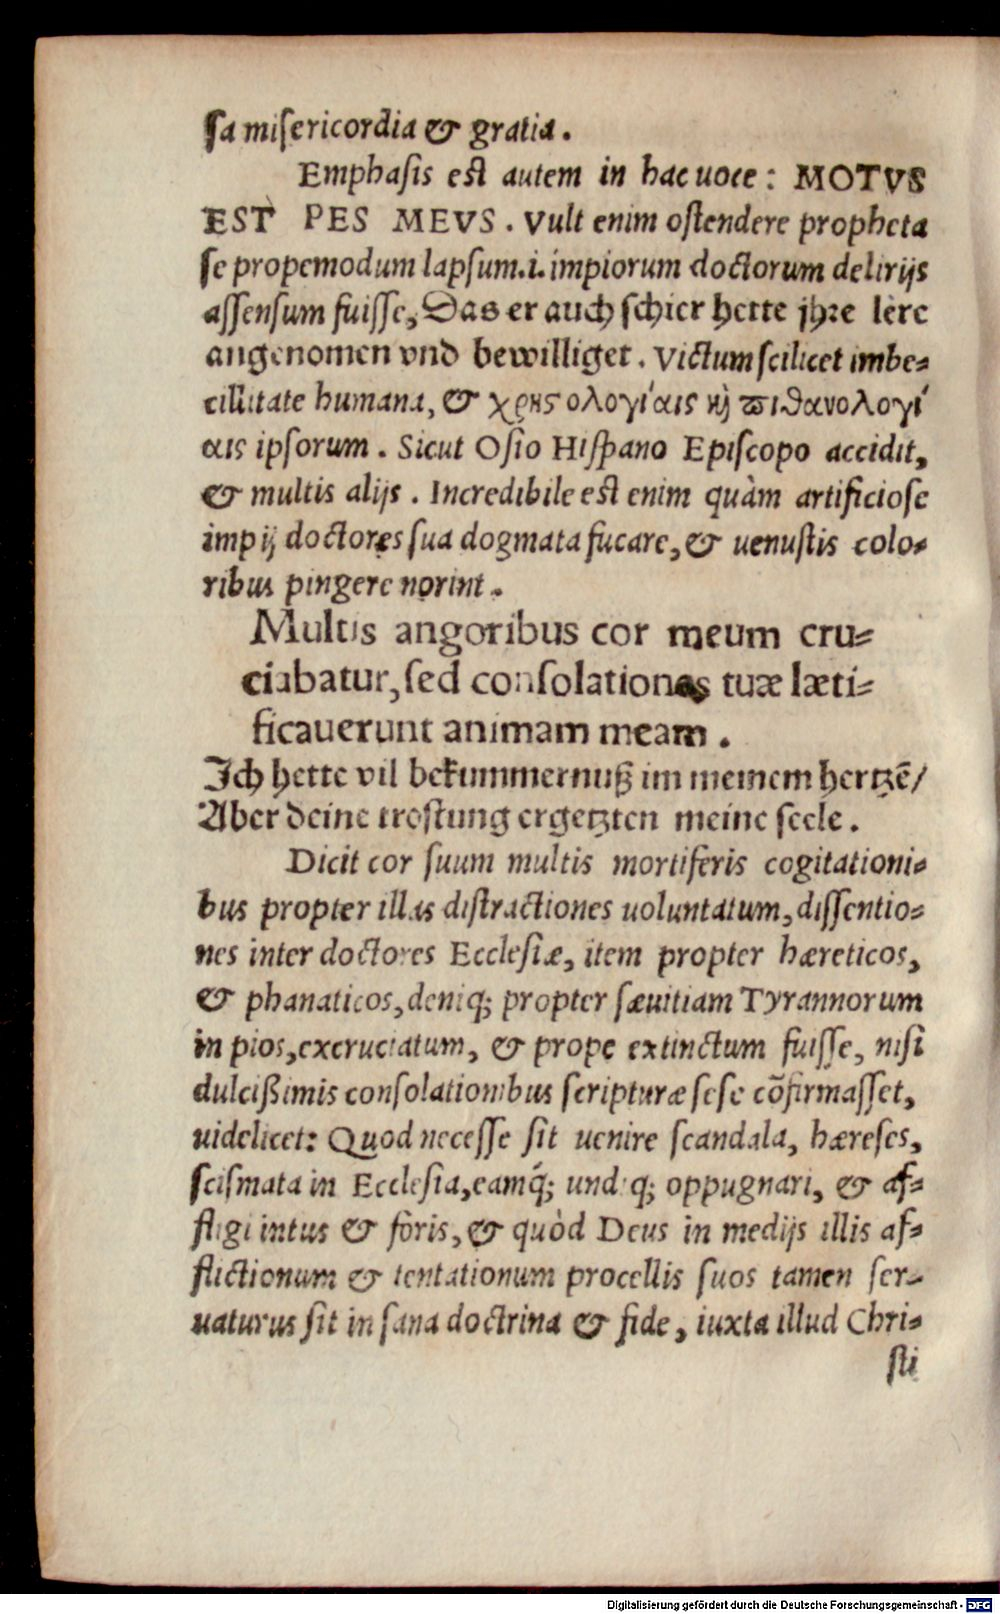 sa misericordia & gratia.
Emphasis est autem in hac uoce: MOTVS
EST PES MEVS. Vult enim ostendere propheta
se propemodum lapsum.i. impiorum doctorum delirijs
assensum fuisse, Das er auch schier hette jhre lere
angenomen vnd bewilliget. Victum scilicet imbe⸗
cillitate humana, & χρηςολογίαις κỳ πιθανολογί
αις ipsorum. Sicut Osio Hispano Episcopo accidit,
& multis alijs. Incredibile est enim quàm artificiose
impij doctores sua dogmata fucare, & uenustis colo⸗
ribus pingere norint.
Multis angoribus cor meum cru⸗
ciabatur, sed consolationes tuæ læti⸗
ficauerunt animam meam.
Ich hette vil bekummernuß im meinem hertzē/
Aber deine trostung ergetzten meine seele.
Dicit cor suum multis mortiferis cogitationi⸗
bus propter illas distractiones uoluntatum, dissentio⸗
nes inter doctores Ecclesiæ, item propter hæreticos,
& phanaticos, deniq; propter sæuitiam Tyrannorum
in pios, excruciatum, & prope extinctum fuisse, nisi
dulcißimis consolationibus scripturæ sese cõfirmasset,
uidelicet: Quod necesse sit uenire scandala, hæreses,
scismata in Ecclesia, eamq́; undiq; oppugnari, & af⸗
fligi intus & foris, & quòd Deus in medijs illis af⸗
flictionum & tentationum procellis suos tamen ser⸗
uaturus sit in sana doctrina & fide, iuxta illud Chri⸗
sti
Digitalisierung gefördert durch die Deutsche Forschungsgemeinschaft - DFG